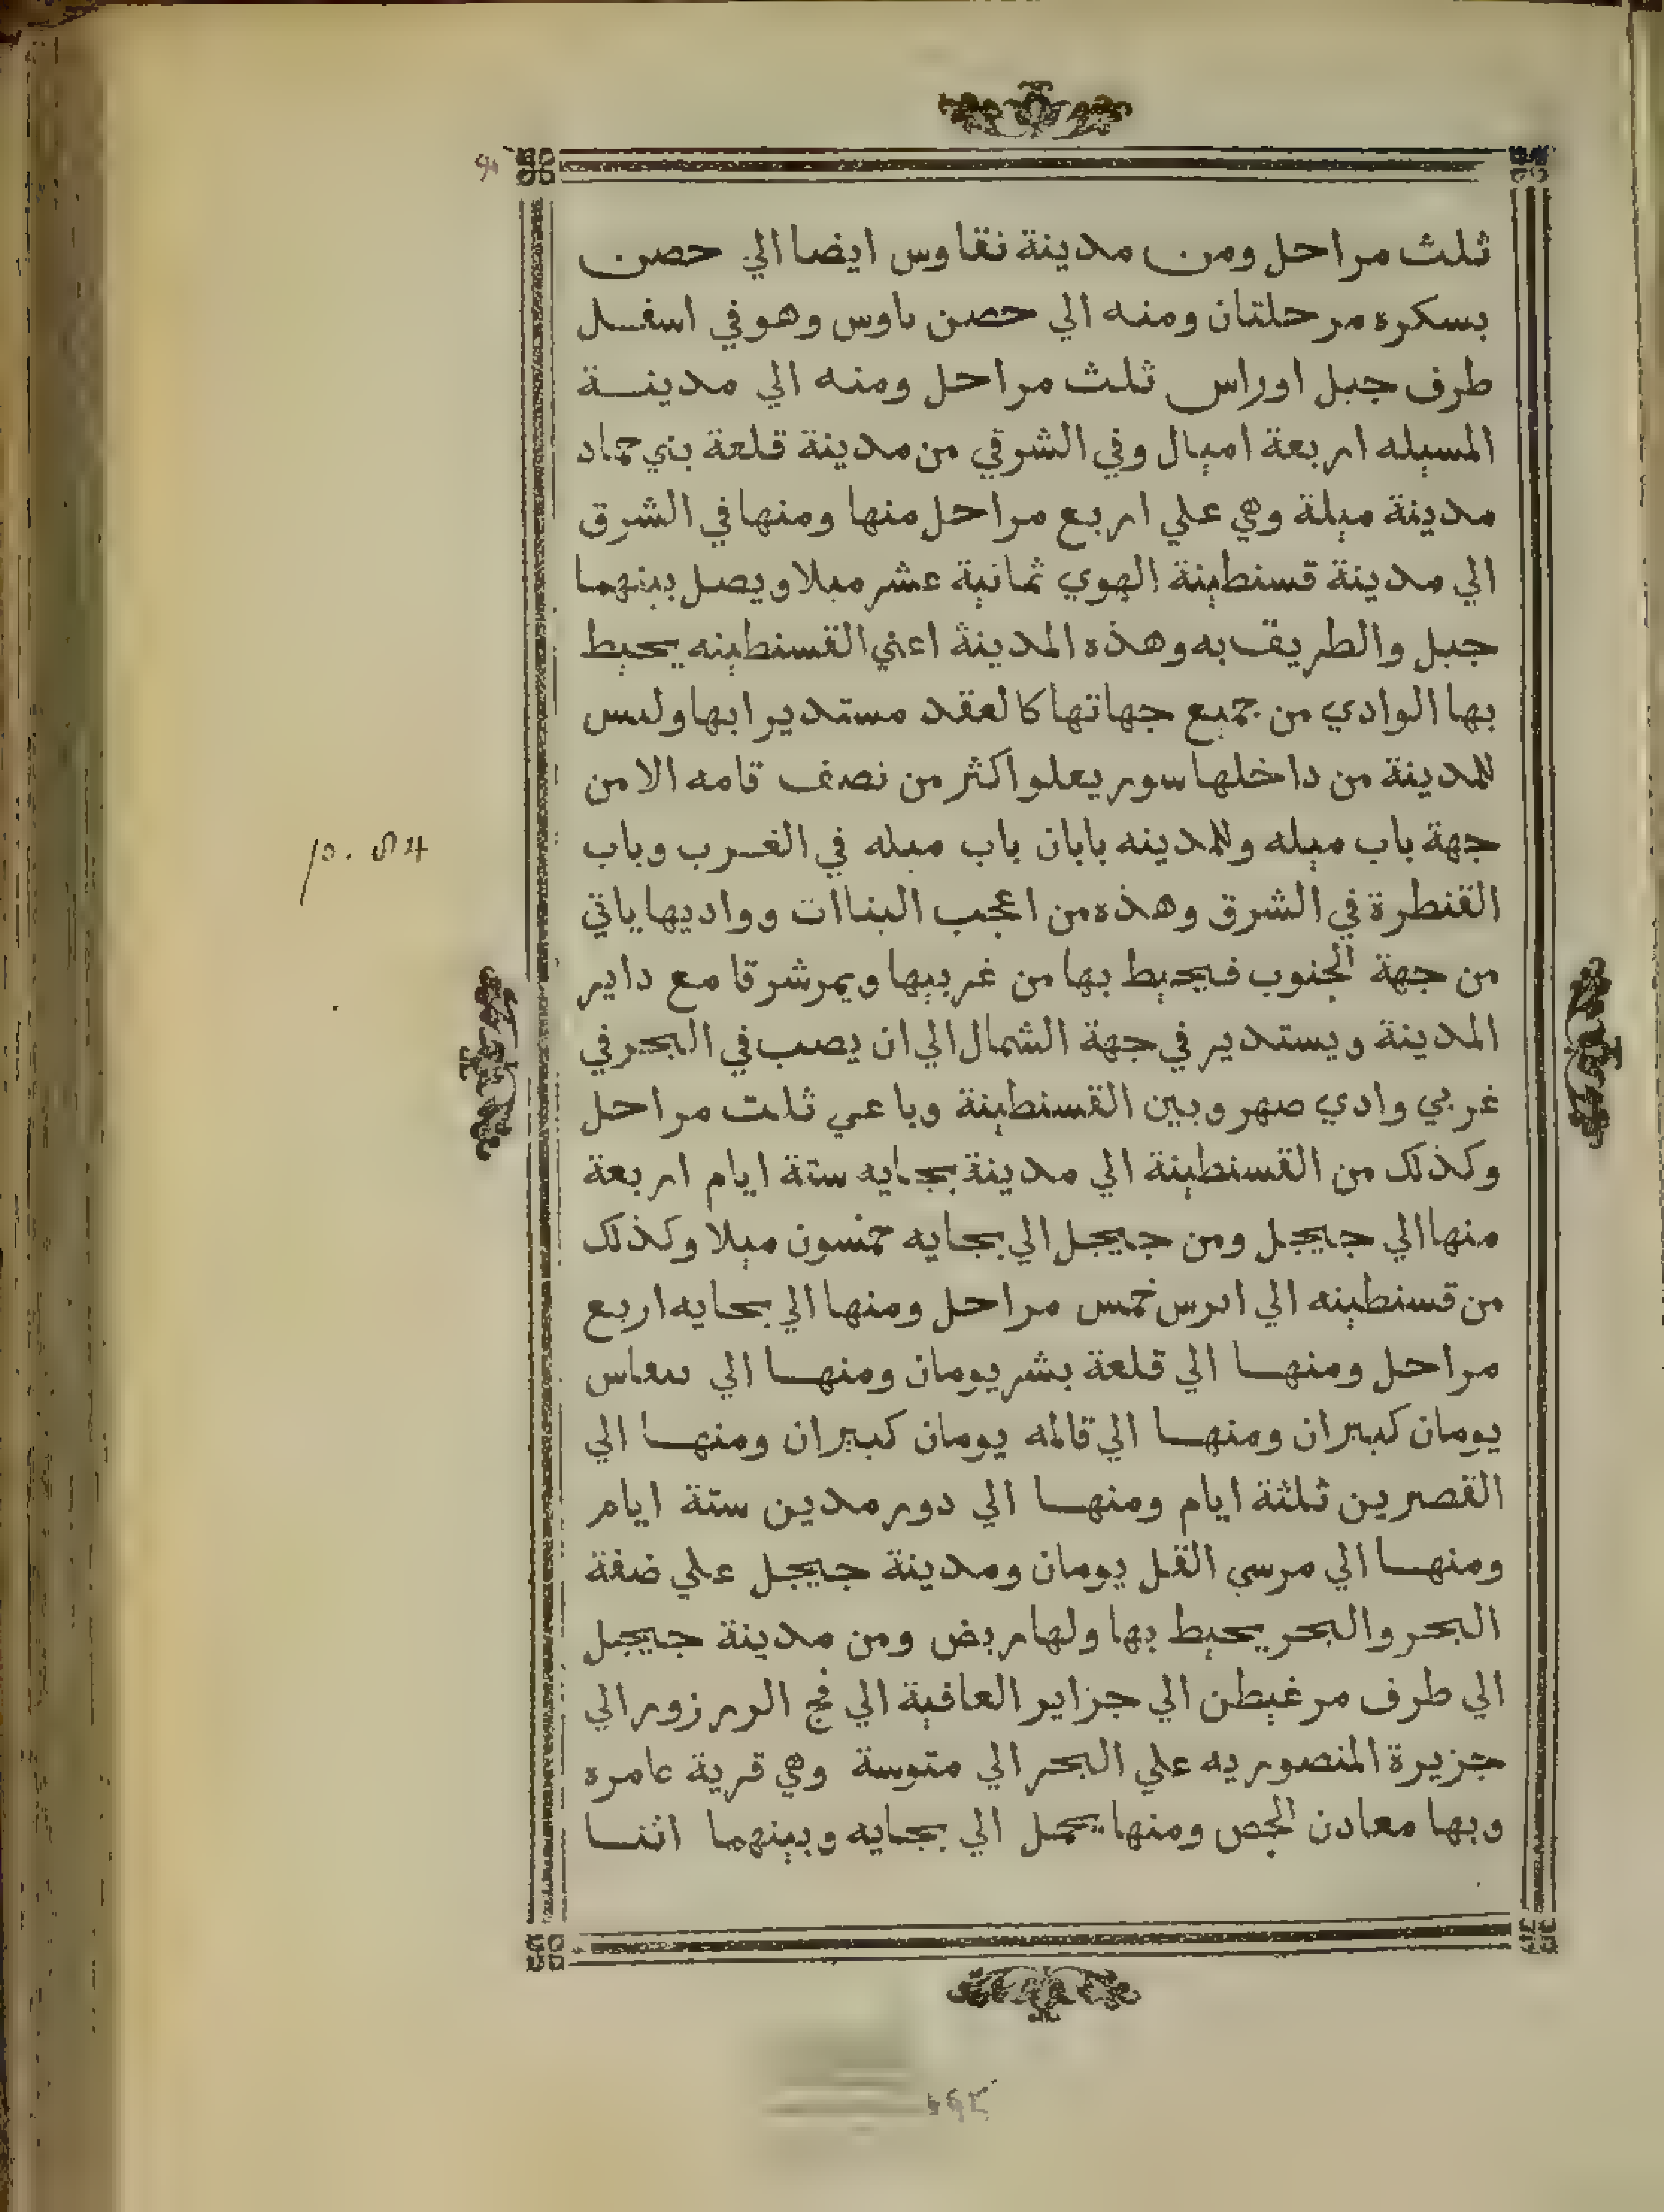 ثلث مراحل ومن مدينة نقاوس ايضا الي حصن
بسكره مرحلتان ومنه الي حصن ىاوس وهو في اسفل
طرف جبل اوراس ثلث مراحل ومنه الي مدينة
المسيله اربعة اميال وفي الشرقي من مدينة قلعة بني حماد
مدينة ميلة وهي علي اربع مراحل منها ومنها في الشرق
الي مدينة قسنطينة الهوي ثمانية عشر ميلا ويصل بينهما
جبل والطريق به وهذه المدينة اعني القسنطينه يحيط
بها الوادي من جميع جهاتها كالعقد مستديرا بها وليس
للمدينة من داخلها سور يعلو اكثر من نصف قامه الا من
جهة باب ميله وللمدينه بابان باب ميله في الغرب وباب
القنطرة في الشرق وهذه من اعجب البناات وواديها ياتي
من جهة الجنوب فيحيط بها من غربيها ويمر شرقا مع داير
المدينة ويستدير في جهة الشمال الي ان يصب في البحر في
غربي وادي صهر وبين القسنطينة وباعى ثلث مراحل
وكذلك من القسنطينة الي مدينة بجايه ستة ايام اربعة
منها الي جيجل ومن جيجل الي بجايه خمسون ميلا وكذلك
من قسنطينه الي ابرس خمس مراحل ومنها الي بجايه اربع
مراحل ومنها الي قلعة بشر يومان ومنها الي
يومان كبيران ومنها الي قالمه يومان كبيران ومنها الي
القصرين ثلثة ايام ومنها الي دور مدين ستة ايام
ومنها الي مرسي القل يومان ومدينة جيجل علي ضفة
البحر والبحر يحيط بها ولها ربض ومن مدينة جيجل
الي طرف مزغيطن الي جزاير العافية الي فج الزرزور الي
جزيرة المنصوريه علي البحر الي متوسة وهي قرية عامره
وبها معادن الجص ومنها يحمل الي بجايه وبينهما اثنا
p. 84